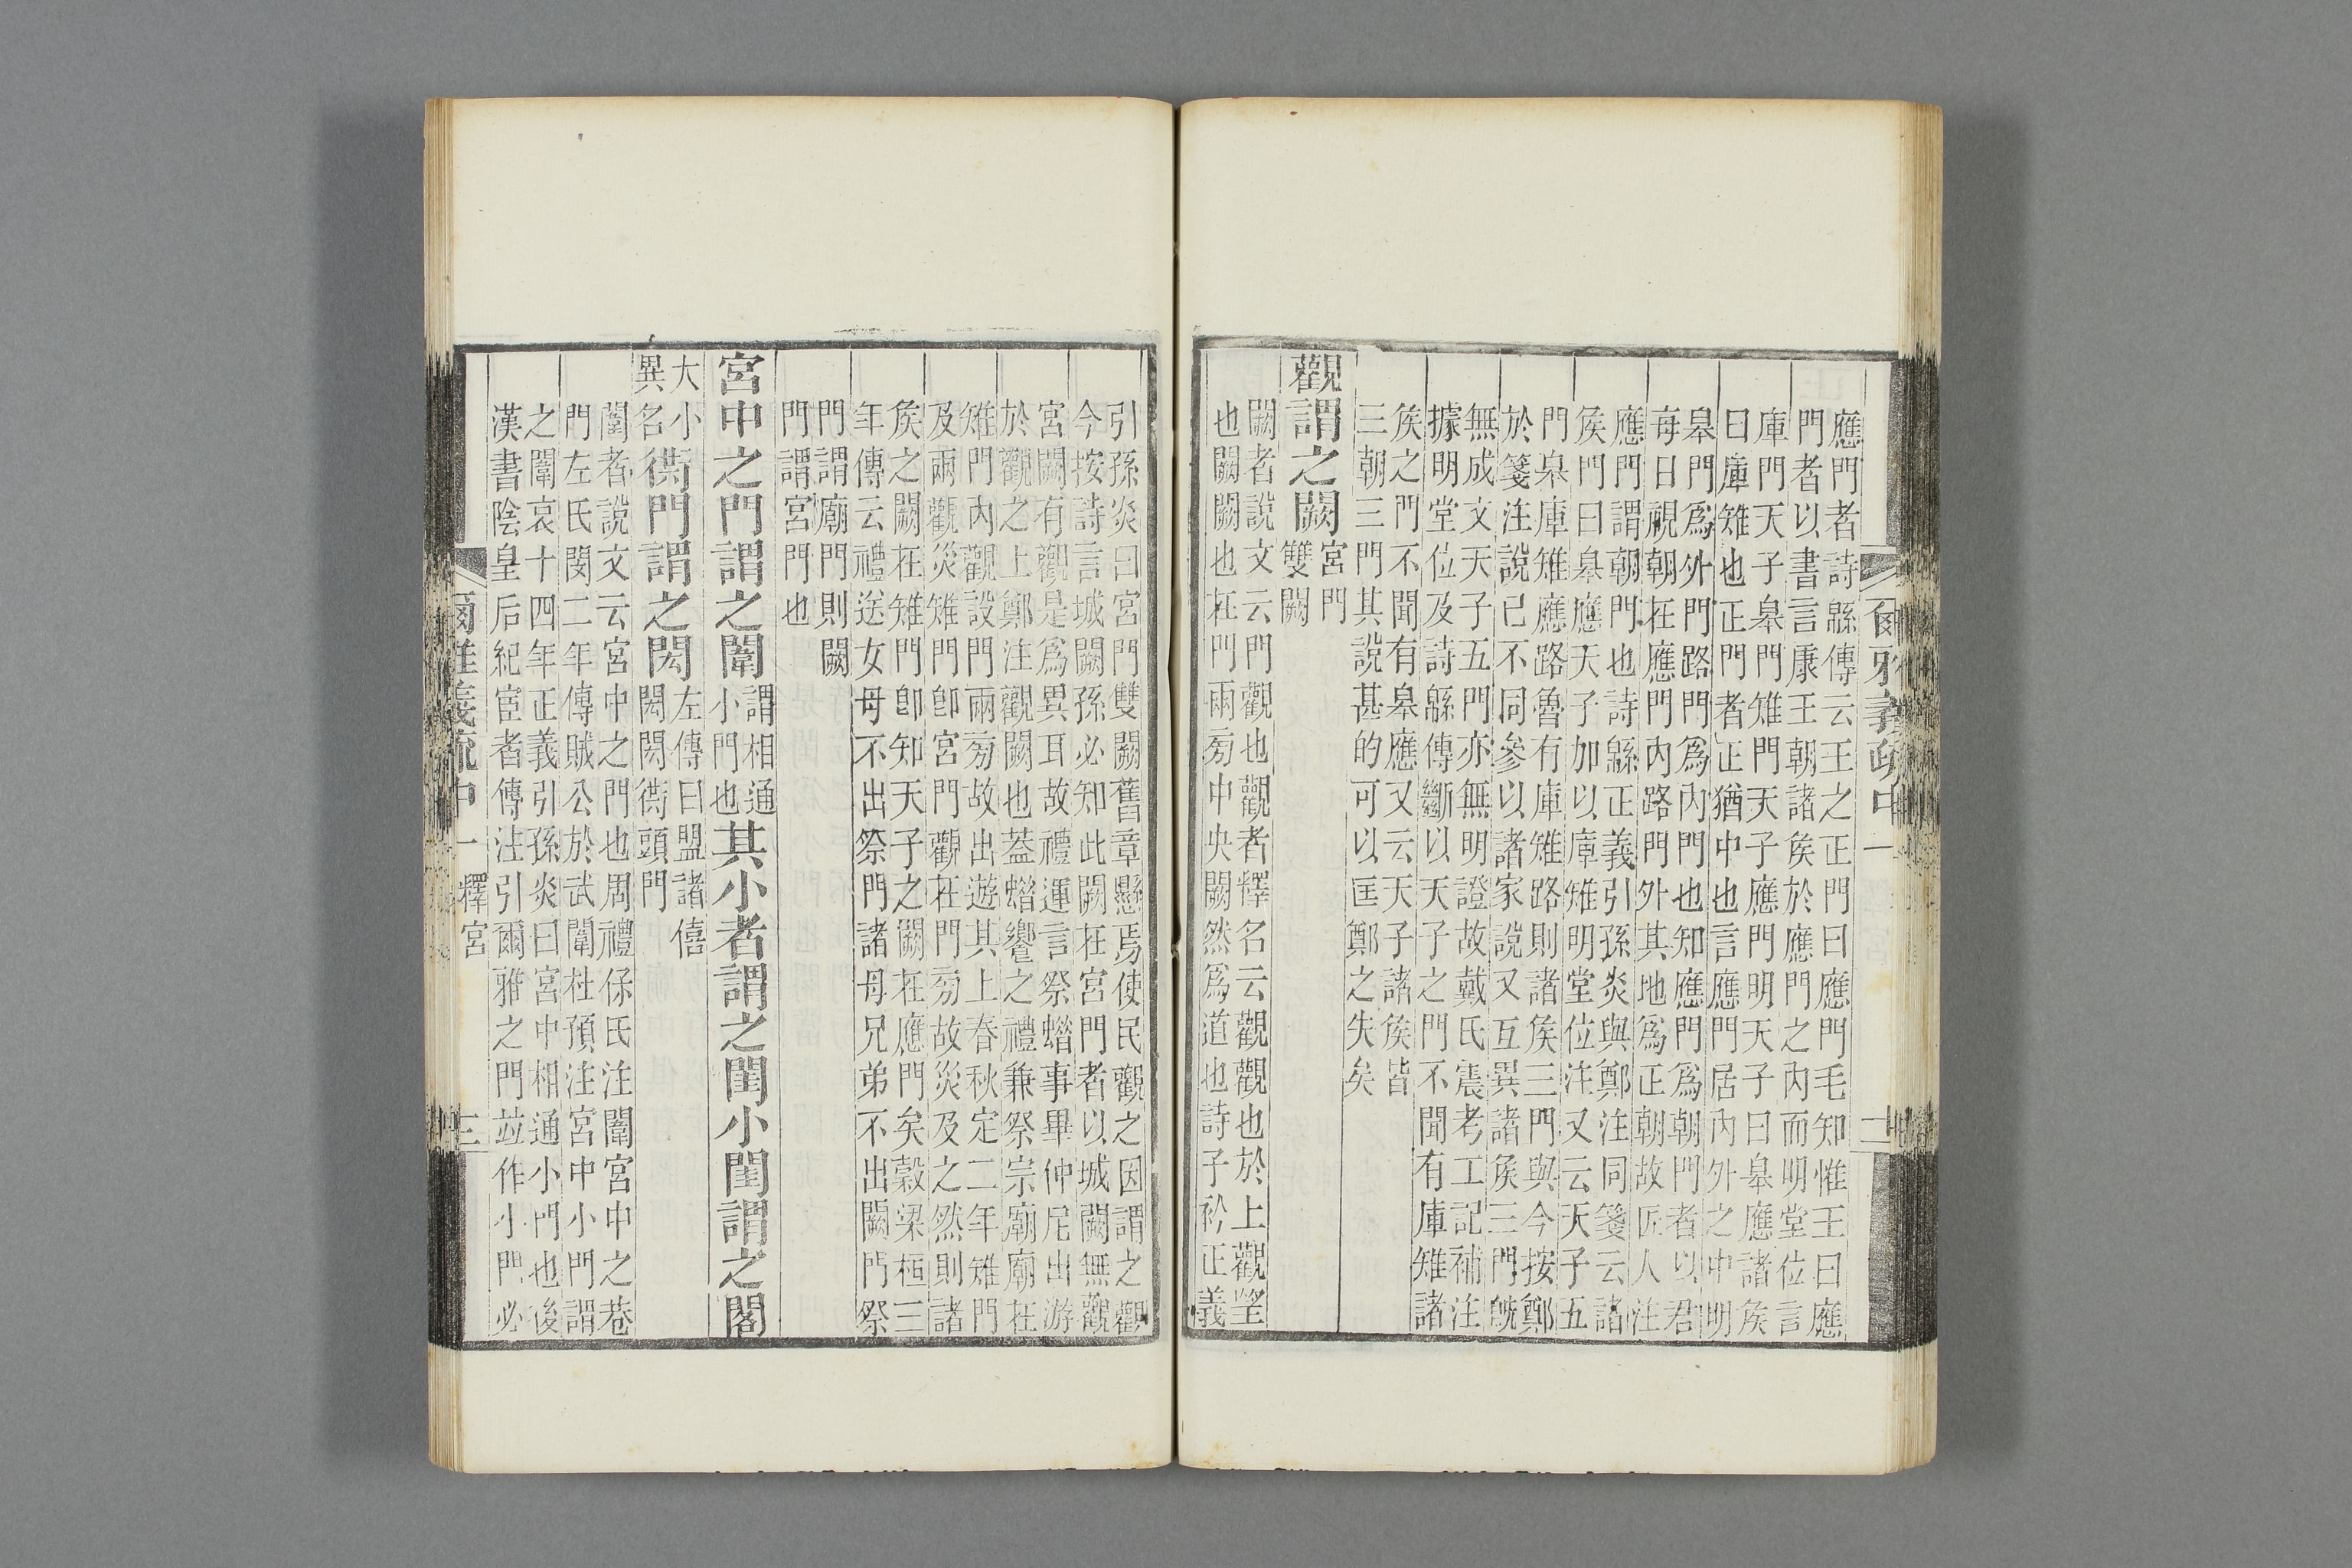 爾雅義疏中一
二
應門者詩緜傳云王之正門曰應門毛知惟王曰應
門者以書言康王朝諸矦於應門之内而明堂位言
庫門天子臯門雉門天子應門明天子曰臯應諸矦
曰庫雉也正門者正猶中也言應門居内外之中明
臯門爲外門路門爲内門也知應門爲朝門者以君
每日視朝在應門内路門外其地爲正朝故匠人注
應門謂朝門也詩緜正義引孫炎與鄭注同箋云諸
矦門曰臯應天子加以庫雉明堂位注又云天子五
門臯庫雉應路魯有庫雉路則諸矦三門與今按鄭
於箋注說已不同參以諸家說又互異諸矦三門旣
無成文天子五門亦無明證故戴氏震考工記補注
據明堂位及詩緜傳斷以天子之門不聞有庫雉諸
矦之門不聞有臯應又云天子諸矦皆
三朝三門其說甚的可以匡鄭之失矣
觀謂之闕
宮門
雙闕
闕者說文云門觀也觀者釋名云觀觀也於上觀望
也闕闕也在門兩旁中央闕然爲道也詩子衿正義
引孫炎曰宮門雙闕舊章懸焉使民觀之因謂之觀
今按詩言城闕孫必知此闕在宮門者以城闕無觀
宮闕有觀是爲異耳故禮運言祭蜡事畢仲尼出游
於觀之上鄭注觀闕也蓋蜡饗之禮兼祭宗廟廟在
雉門内觀設門兩旁故出遊其上春秋定二年雉門
及兩觀災雉門卽宮門觀在門旁故災及之然則諸
矦之闕在雉門卽知天子之闕在應門矣穀梁桓三
年傳云禮送女母不出祭門諸母兄弟不出闕門祭
門謂廟門則闕
門謂宮門也
宮中之門謂之闈
謂相通
小門也
其小者謂之閨小閨謂之閤
大小
異名
衖門謂之閎
左傳曰盟諸僖
閎閎衖頭門
闈者說文云宮中之門也周禮保氏注闈宮中之巷
門左氏閔二年傳賊公於武闈杜預注宮中小門謂
之闈哀十四年正義引孫炎曰宮中相通小門也後
漢書陰皇后紀宦者傳注引爾雅之門竝作小門必
爾雅義疏中一
釋宮
三